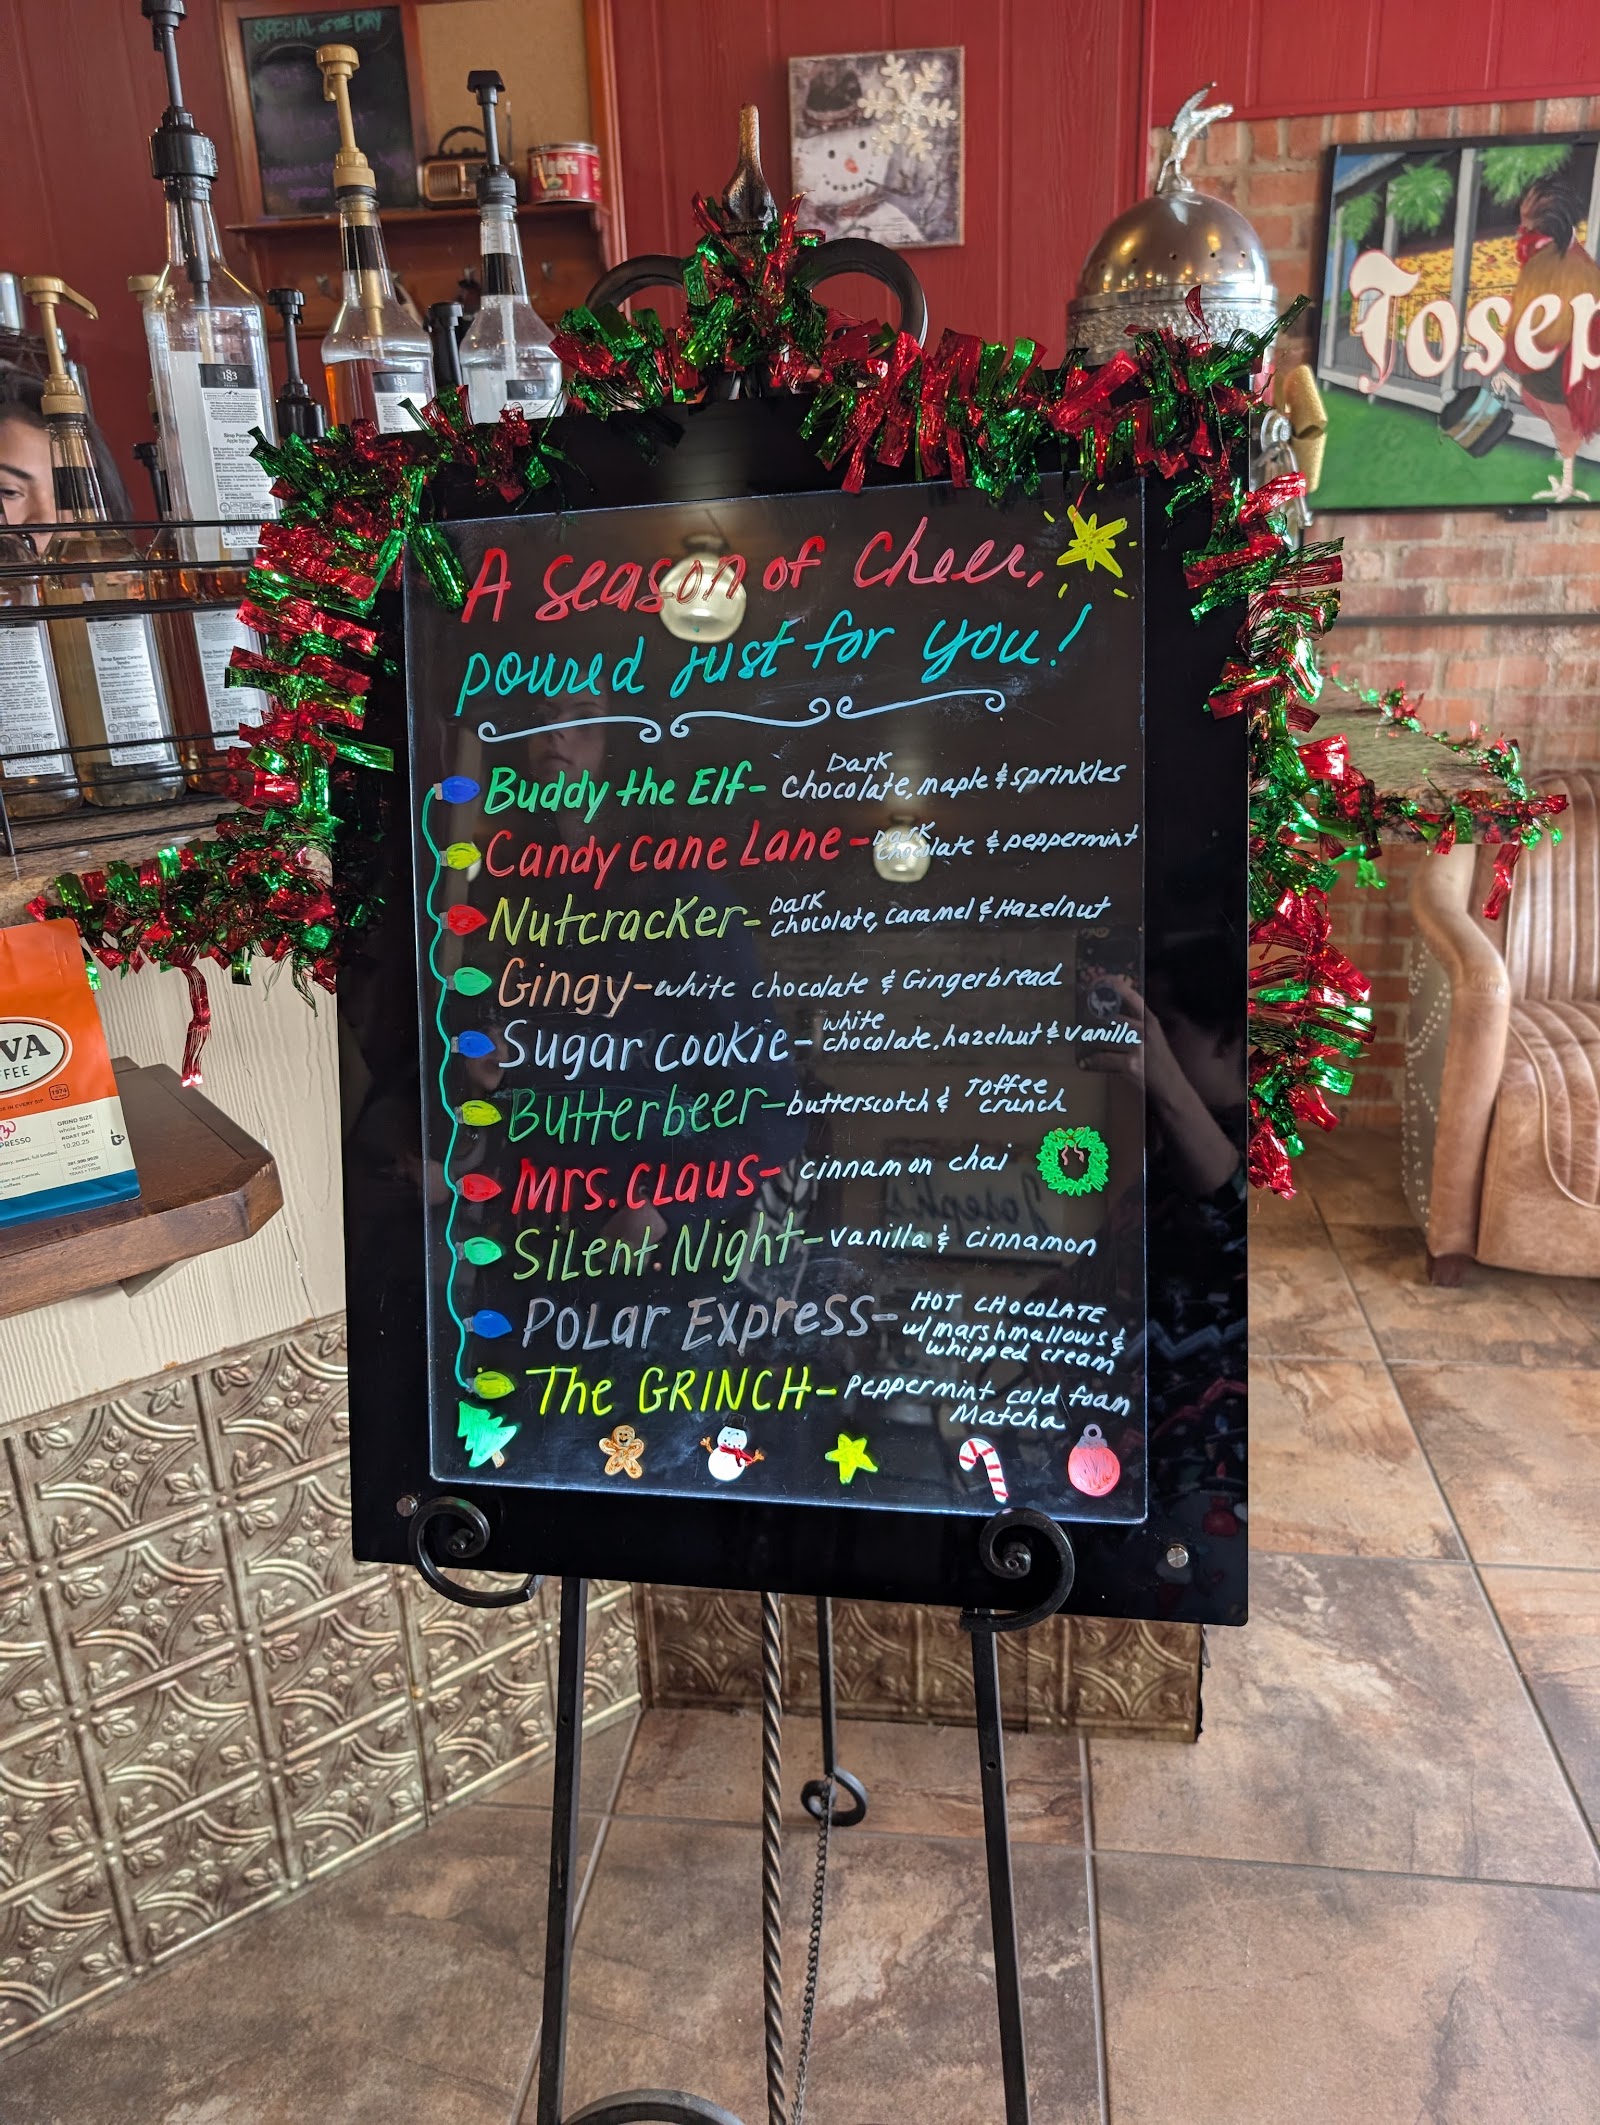 SPECIAL OF THE DAY
183
183
Sirop Pomme
Apple Syrup
Josep
A season of Cheer,
poured just for you!
Buddy the Elf- Dark Chocolate, maple & sprinkles
Candy Cane Lane- Dark Chocolate & peppermint
Nutcracker- Dark chocolate, caramel & Hazelnut
Gingy- white chocolate & Gingerbread
Sugar cookie- white chocolate, hazelnut & vanilla
Butterbeer- butterscotch & Toffee crunch
Mrs. Claus- cinnamon chai
Silent Night- vanilla & cinnamon
Polar Express- HOT CHOCOLATE
w/ marshmallows &
whipped cream
The GRINCH- Peppermint cold foam
Matcha
VA
FFEE
PRESSO
GRIND SIZE
whole bean
ROAST DATE
10.20.25
HOUSTON,